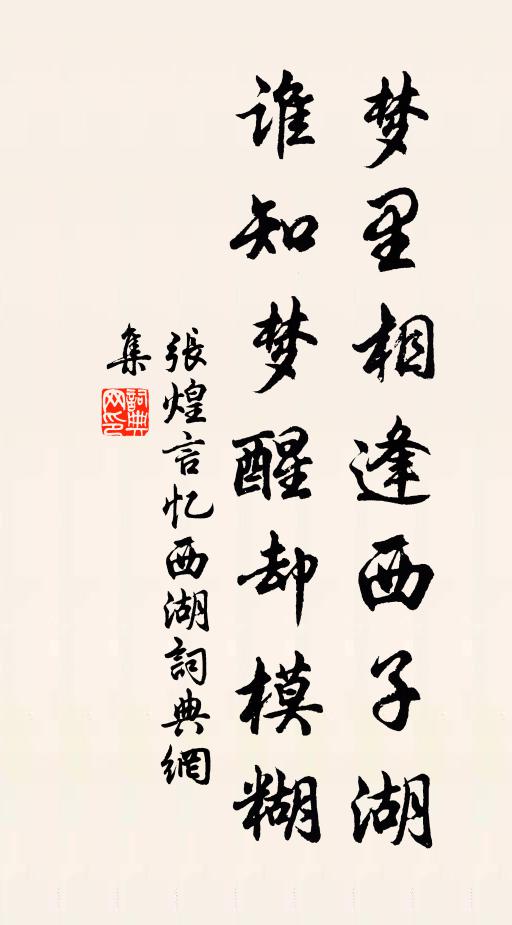 梦里相逢西子湖
谁知梦醒却模糊
張煌言忆西湖詞典網
集
詞典
网印